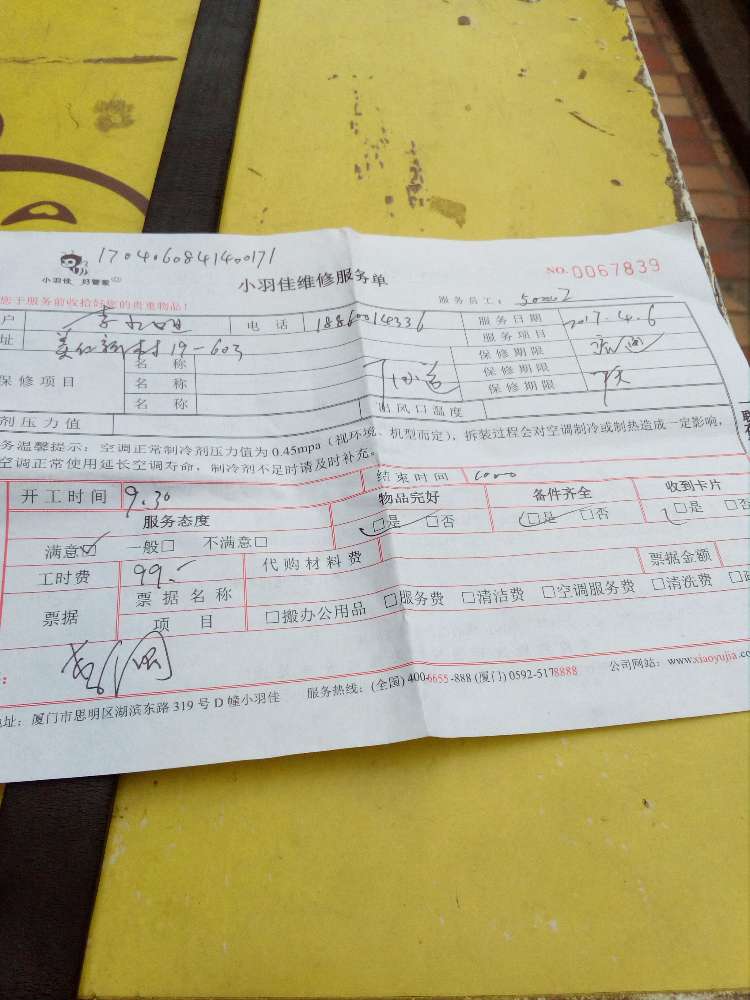 1704060841400171
小羽佳 好管家
小羽佳维修服务单
NO.0067839
您于服务前收拾好您的贵重物品!
服务员工:
户 电话 18860014336 服务日期 2017.4.6
址 19-603 服务项目
保修项目 名称 保修期限
名称 保修期限
名称 保修期限
剂压力值 出风口温度
务温馨提示:空调正常制冷剂压力值为0.45mpa(视环境、机型而定),拆装过程会对空调制冷或制热造成一定影响,
空调正常使用延长空调寿命,制冷剂不足时请及时补充。
开工时间 9.30 结束时间
服务态度 物品完好 备件齐全 收到卡片
满意☑ 一般□ 不满意□ □是 □否 □是 □否 □是 □否
工时费 99.- 代购材料费
票据 票据名称 票据金额
项目 □搬办公用品 □服务费 □清洁费 □空调服务费 □清洗费
地址:厦门市思明区湖滨东路319号D幢小羽佳 服务热线:(全国)400-6655-888(厦门)0592-5178888 公司网站:www.xiaoyujia.co